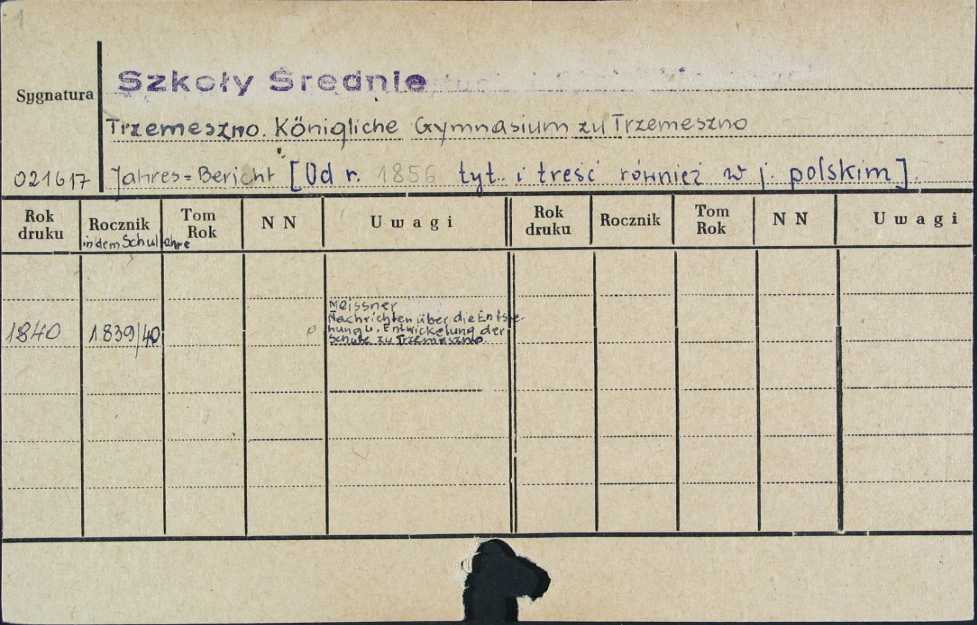 1
Szkoły Średnie
Sygnatura
Trzemeszno. Königliche Gymnasium zu Trzemeszno
021617 Jahres=Bericht [Od r. 1856 tyt. i treść również w j. polskim].
Rok druku Rocznik Tom Rok N N Uwagi Rok druku Rocznik Tom Rok N N Uwagi
in dem Schuljahre
Meissner
Nachrichten über die Entste-
1840 1839/40 hung u. Entwickelung der
Schule zu Trzemeszno